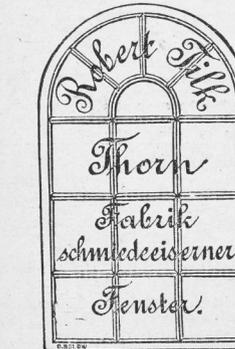 Robert Tilk
Thorn
Fabrik
schmiedeeiserner
Fenster.